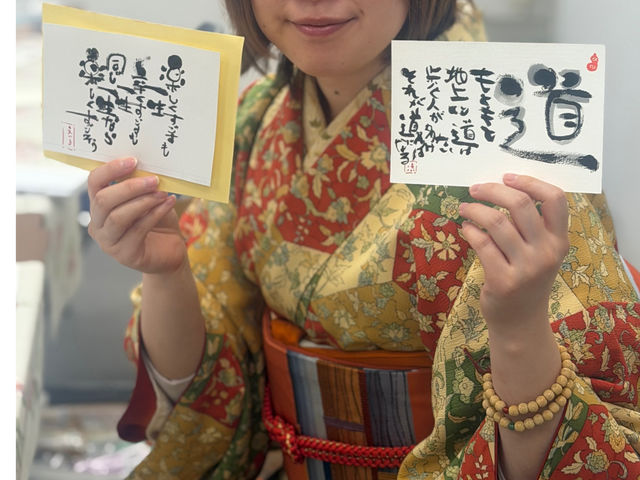 楽しくすごすも
一生
すごすも
一生
同じ一生なら
楽しくすごそう
道
もともと
地上に道は
ない
歩く人が
それが道になる